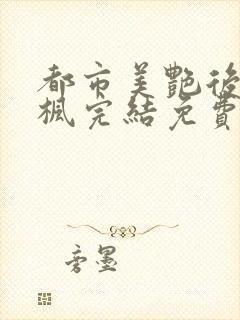 都市美艷後
楓完結免費
旁墨